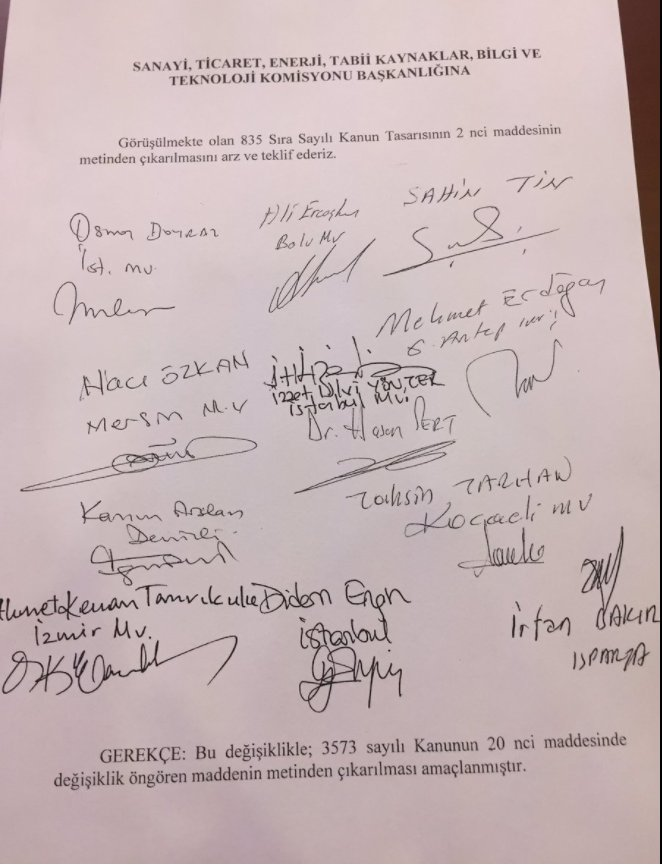 SANAYİ, TİCARET, ENERJİ, TABİİ KAYNAKLAR, BİLGİ VE
TEKNOLOJİ KOMİSYONU BAŞKANLIĞINA
Görüşülmekte olan 835 Sıra Sayılı Kanun Tasarısının 2 nci maddesinin
metinden çıkarılmasını arz ve teklif ederiz.
Osman Boyraz
İst. mv.
Ali Ercoşkun
Bolu Mv
ŞAHİN TİN
Mehmet Erdoğan
G.Antep mv
Hacı ÖZKAN
Mersin M.V
İzzet Ulvi YÖNTER
İstanbul Mv.
Dr. Hasan SERT
Kazım Arslan
Denizli
Tahsin TARHAN
Kocaeli mv
Ahmet Kenan Tanrıkulu
İzmir Mv.
Didem Engin
İstanbul
İrfan BAKIR
ISPARTA
GEREKÇE: Bu değişiklikle; 3573 sayılı Kanunun 20 nci maddesinde
değişiklik öngören maddenin metinden çıkarılması amaçlanmıştır.